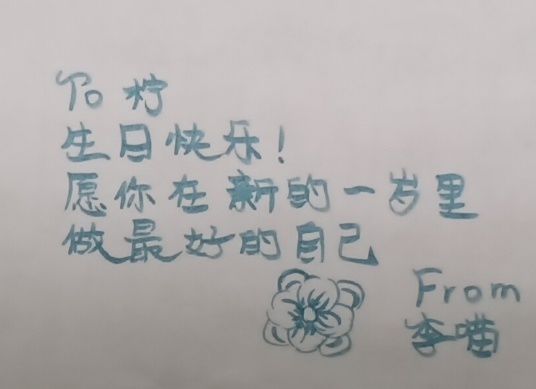 To 柠
生日快乐！
愿你在新的一岁里
做最好的自己
From
李喵